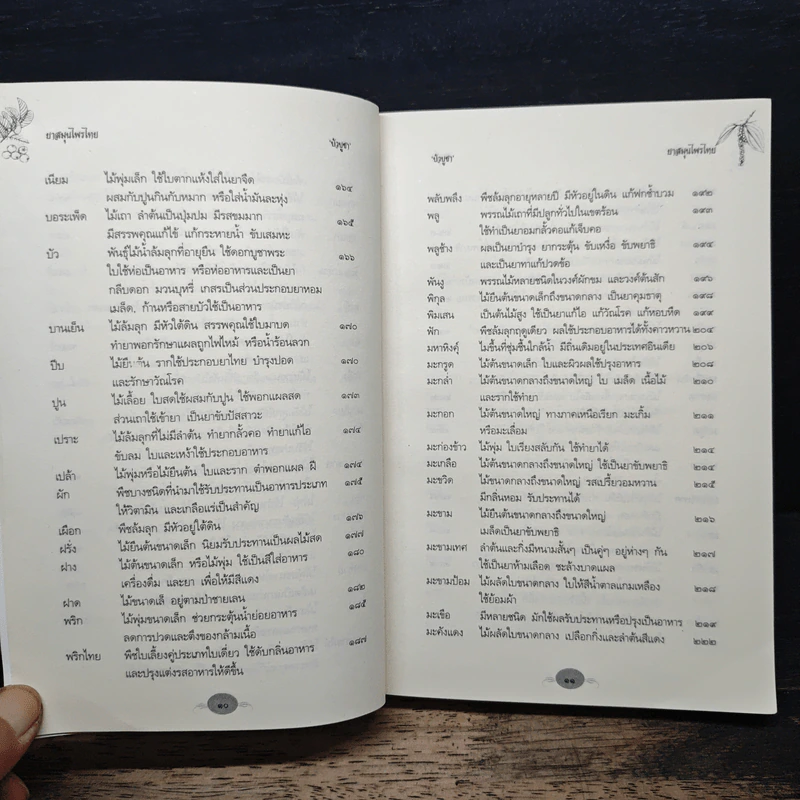 ยาสมุนไพรไทย
'บัวบูชา'
เนียม ไม้พุ่มเล็ก ใช้ใบตากแห้งใส่ในยาจืด
ผสมกับปูนกินกับหมาก หรือใส่น้ำมันละหุ่ง ๑๖๔
บอระเพ็ด ไม้เถา ลำต้นเป็นปุ่มปม มีรสขมมาก
มีสรรพคุณแก้ไข้ แก้กระหายน้ำ ขับเสมหะ ๑๖๕
บัว พันธุ์ไม้น้ำล้มลุกที่อายุยืน ใช้ดอกบูชาพระ ๑๖๖
ใบใช้ห่อเป็นอาหาร หรือห่ออาหารและเป็นยา
กลีบดอก มวนบุหรี่ เกสรเป็นส่วนประกอบยาหอม
เมล็ด, ก้านหรือสายบัวใช้เป็นอาหาร
บานเย็น ไม้ล้มลุก มีหัวใต้ดิน สรรพคุณใช้ใบมาบด ๑๗๐
ทำยาพอกรักษาแผลถูกไฟไหม้ หรือน้ำร้อนลวก
ปีบ ไม้ยืนต้น รากใช้ประกอบยาไทย บำรุงปอด ๑๗๐
และรักษาวัณโรค
ปูน ไม้เลื้อย ใบสดใช้ผสมกับปูน ใช้พอกแผลสด ๑๗๓
ส่วนเถาใช้เข้ายา เป็นยาขับปัสสาวะ
เปราะ ไม้ล้มลุกที่ไม่มีลำต้น ทำยากลั้วคอ ทำยาแก้ไอ ๑๗๔
ขับลม ใบและเหง้าใช้ประกอบอาหาร
เปล้า ไม้พุ่มหรือไม้ยืนต้น ใบและราก ตำพอกแผล ฝี ๑๗๔
ผัก พืชบางชนิดที่นำมาใช้รับประทานเป็นอาหารประเภท ๑๗๕
ให้วิตามิน และเกลือแร่เป็นสำคัญ
เผือก พืชล้มลุก มีหัวอยู่ใต้ดิน ๑๗๖
ฝรั่ง ไม้ยืนต้นขนาดเล็ก นิยมรับประทานเป็นผลไม้สด ๑๗๗
ฝาง ไม้ต้นขนาดเล็ก หรือไม้พุ่ม ใช้เป็นสีใส่อาหาร ๑๘๐
เครื่องดื่ม และยา เพื่อให้มีสีแดง
ฝาด ไม้ขนาดเล็ อยู่ตามป่าชายเลน ๑๘๒
พริก ไม้พุ่มขนาดเล็ก ช่วยกระตุ้นน้ำย่อยอาหาร ๑๘๕
ลดการปวดและตึงของกล้ามเนื้อ
พริกไทย พืชใบเลี้ยงคู่ประเภทใบเดี่ยว ใช้ดับกลิ่นอาหาร ๑๘๗
และปรุงแต่งรสอาหารให้ดีขึ้น
๑๐
'บัวบูชา'
ยาสมุนไพรไทย
พลับพลึง พืชล้มลุกอายุหลายปี มีหัวอยู่ในดิน แก้ฟกช้ำบวม ๑๙๒
พลู พรรณไม้เถาที่มีปลูกทั่วไปในเขตร้อน ๑๙๓
ใช้ทำเป็นยาอมกลั้วคอแก้เจ็บคอ
พลูช้าง ผลเป็นยาบำรุง ยากระตุ้น ขับเหงื่อ ขับพยาธิ ๑๙๔
และเป็นยาทาแก้ปวดข้อ
พันงู พรรณไม้หลายชนิดในวงศ์ผักขม และวงศ์ต้นสัก ๑๙๖
พิกุล ไม้ยืนต้นขนาดเล็กถึงขนาดกลาง เป็นยาคุมธาตุ ๑๙๘
พิมเสน เป็นต้นไม้สูง ใช้เป็นยาแก้ไอ แก้วัณโรค แก้หอบหืด ๑๙๙
ฟัก พืชล้มลุกฤดูเดียว ผลใช้ประกอบอาหารได้ทั้งคาวหวาน ๒๐๔
มหาหิงคุ์ ไม้ขึ้นที่ชุ่มชื้นใกล้น้ำ มีถิ่นเดิมอยู่ในประเทศอินเดีย ๒๐๖
มะกรูด ไม้ต้นขนาดเล็ก ใบและผิวผลใช้ปรุงอาหาร ๒๐๘
มะกล่ำ ไม้ต้นขนาดกลางถึงขนาดใหญ่ ใบ เมล็ด เนื้อไม้ ๒๑๐
และรากใช้ทำยา
มะกอก ไม้ต้นขนาดใหญ่ ทางภาคเหนือเรียก มะเกิ้ม ๒๑๑
หรือมะเลื่อม
มะก่องข้าว ไม้พุ่ม ใบเรียงสลับกัน ใช้ทำยาได้ ๒๑๔
มะเกลือ ไม้ต้นขนาดกลางถึงขนาดใหญ่ ใช้เป็นยาขับพยาธิ ๒๑๔
มะขวิด ไม้ต้นขนาดกลางถึงขนาดใหญ่ รสเปรี้ยวอมหวาน ๒๑๕
มีกลิ่นหอม รับประทานได้
มะขาม ไม้ยืนต้นขนาดกลางถึงขนาดใหญ่ ๒๑๖
เมล็ดเป็นยาขับพยาธิ
มะขามเทศ ลำต้นและกิ่งมีหนามสั้นๆ เป็นคู่ๆ อยู่ห่างๆ กัน ๒๑๗
ใช้เป็นยาห้ามเลือด ชะล้างบาดแผล
มะขามป้อม ไม้ผลัดใบขนาดกลาง ใบให้สีน้ำตาลแกมเหลือง ๒๑๘
ใช้ย้อมผ้า
มะเขือ มีหลายชนิด มักใช้ผลรับประทานหรือปรุงเป็นอาหาร ๒๑๙
มะคังแดง ไม้ผลัดใบขนาดกลาง เปลือกกิ่งและลำต้นสีแดง ๒๒๒
๑๑